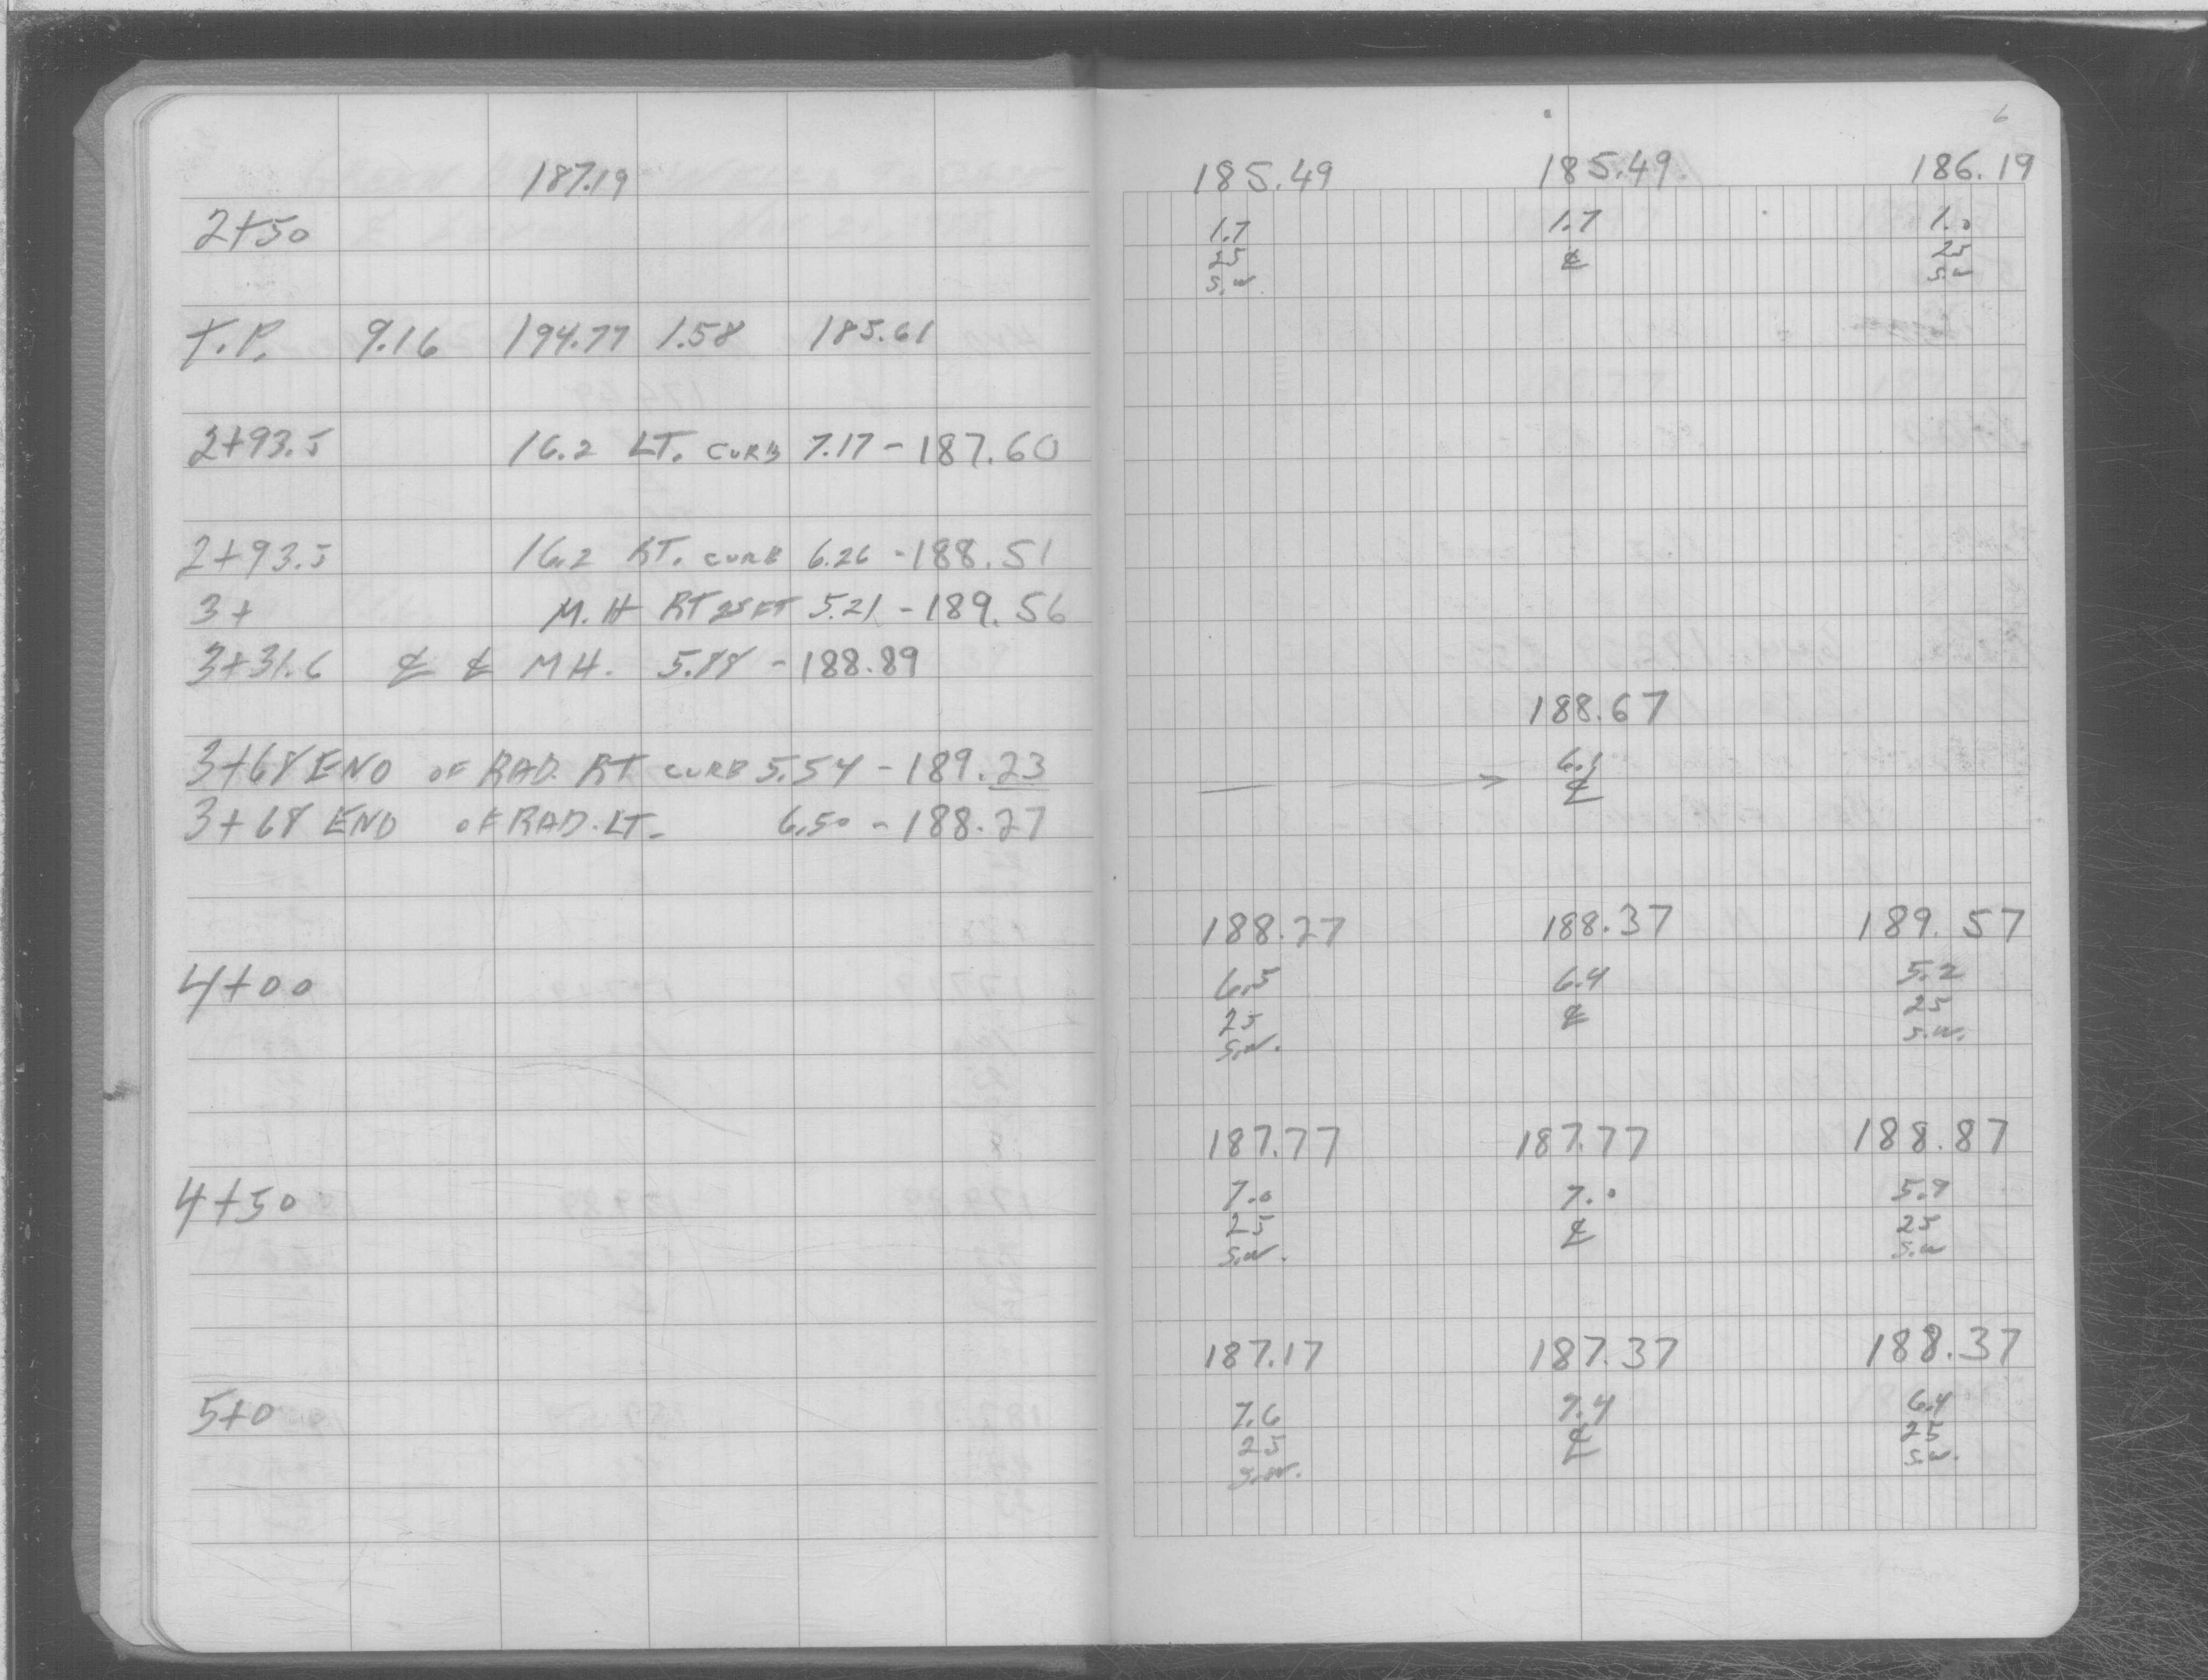 187.19
2+50
T.P. 9.16 194.77 1.58 185.61
2+93.5 16.2 LT. CURB 7.17 - 187.60
2+93.5 16.2 RT. CURB 6.26 - 188.51
3+ M.H RT 25 FT 5.21 - 189.56
3+31.6 ℄ ℄ M H. 5.88 - 188.89
3+68 END OF RAD. RT CURB 5.54 - 189.23
3+68 END OF RAD. LT. 6.50 - 188.27
4+00
4+50
5+0
6
185.49 185.49 186.19
1.7 1.7 1.0
25 ℄ 25
S.W. S.W
188.67
6.1
℄
188.27 188.37 189.57
6.5 6.4 5.2
25 ℄ 25
S.W. S.W.
187.77 187.77 188.87
7.0 7.0 5.9
25 ℄ 25
S.W. S.W
187.17 187.37 188.37
7.6 7.4 6.4
25 ℄ 25
S.W. S.W.